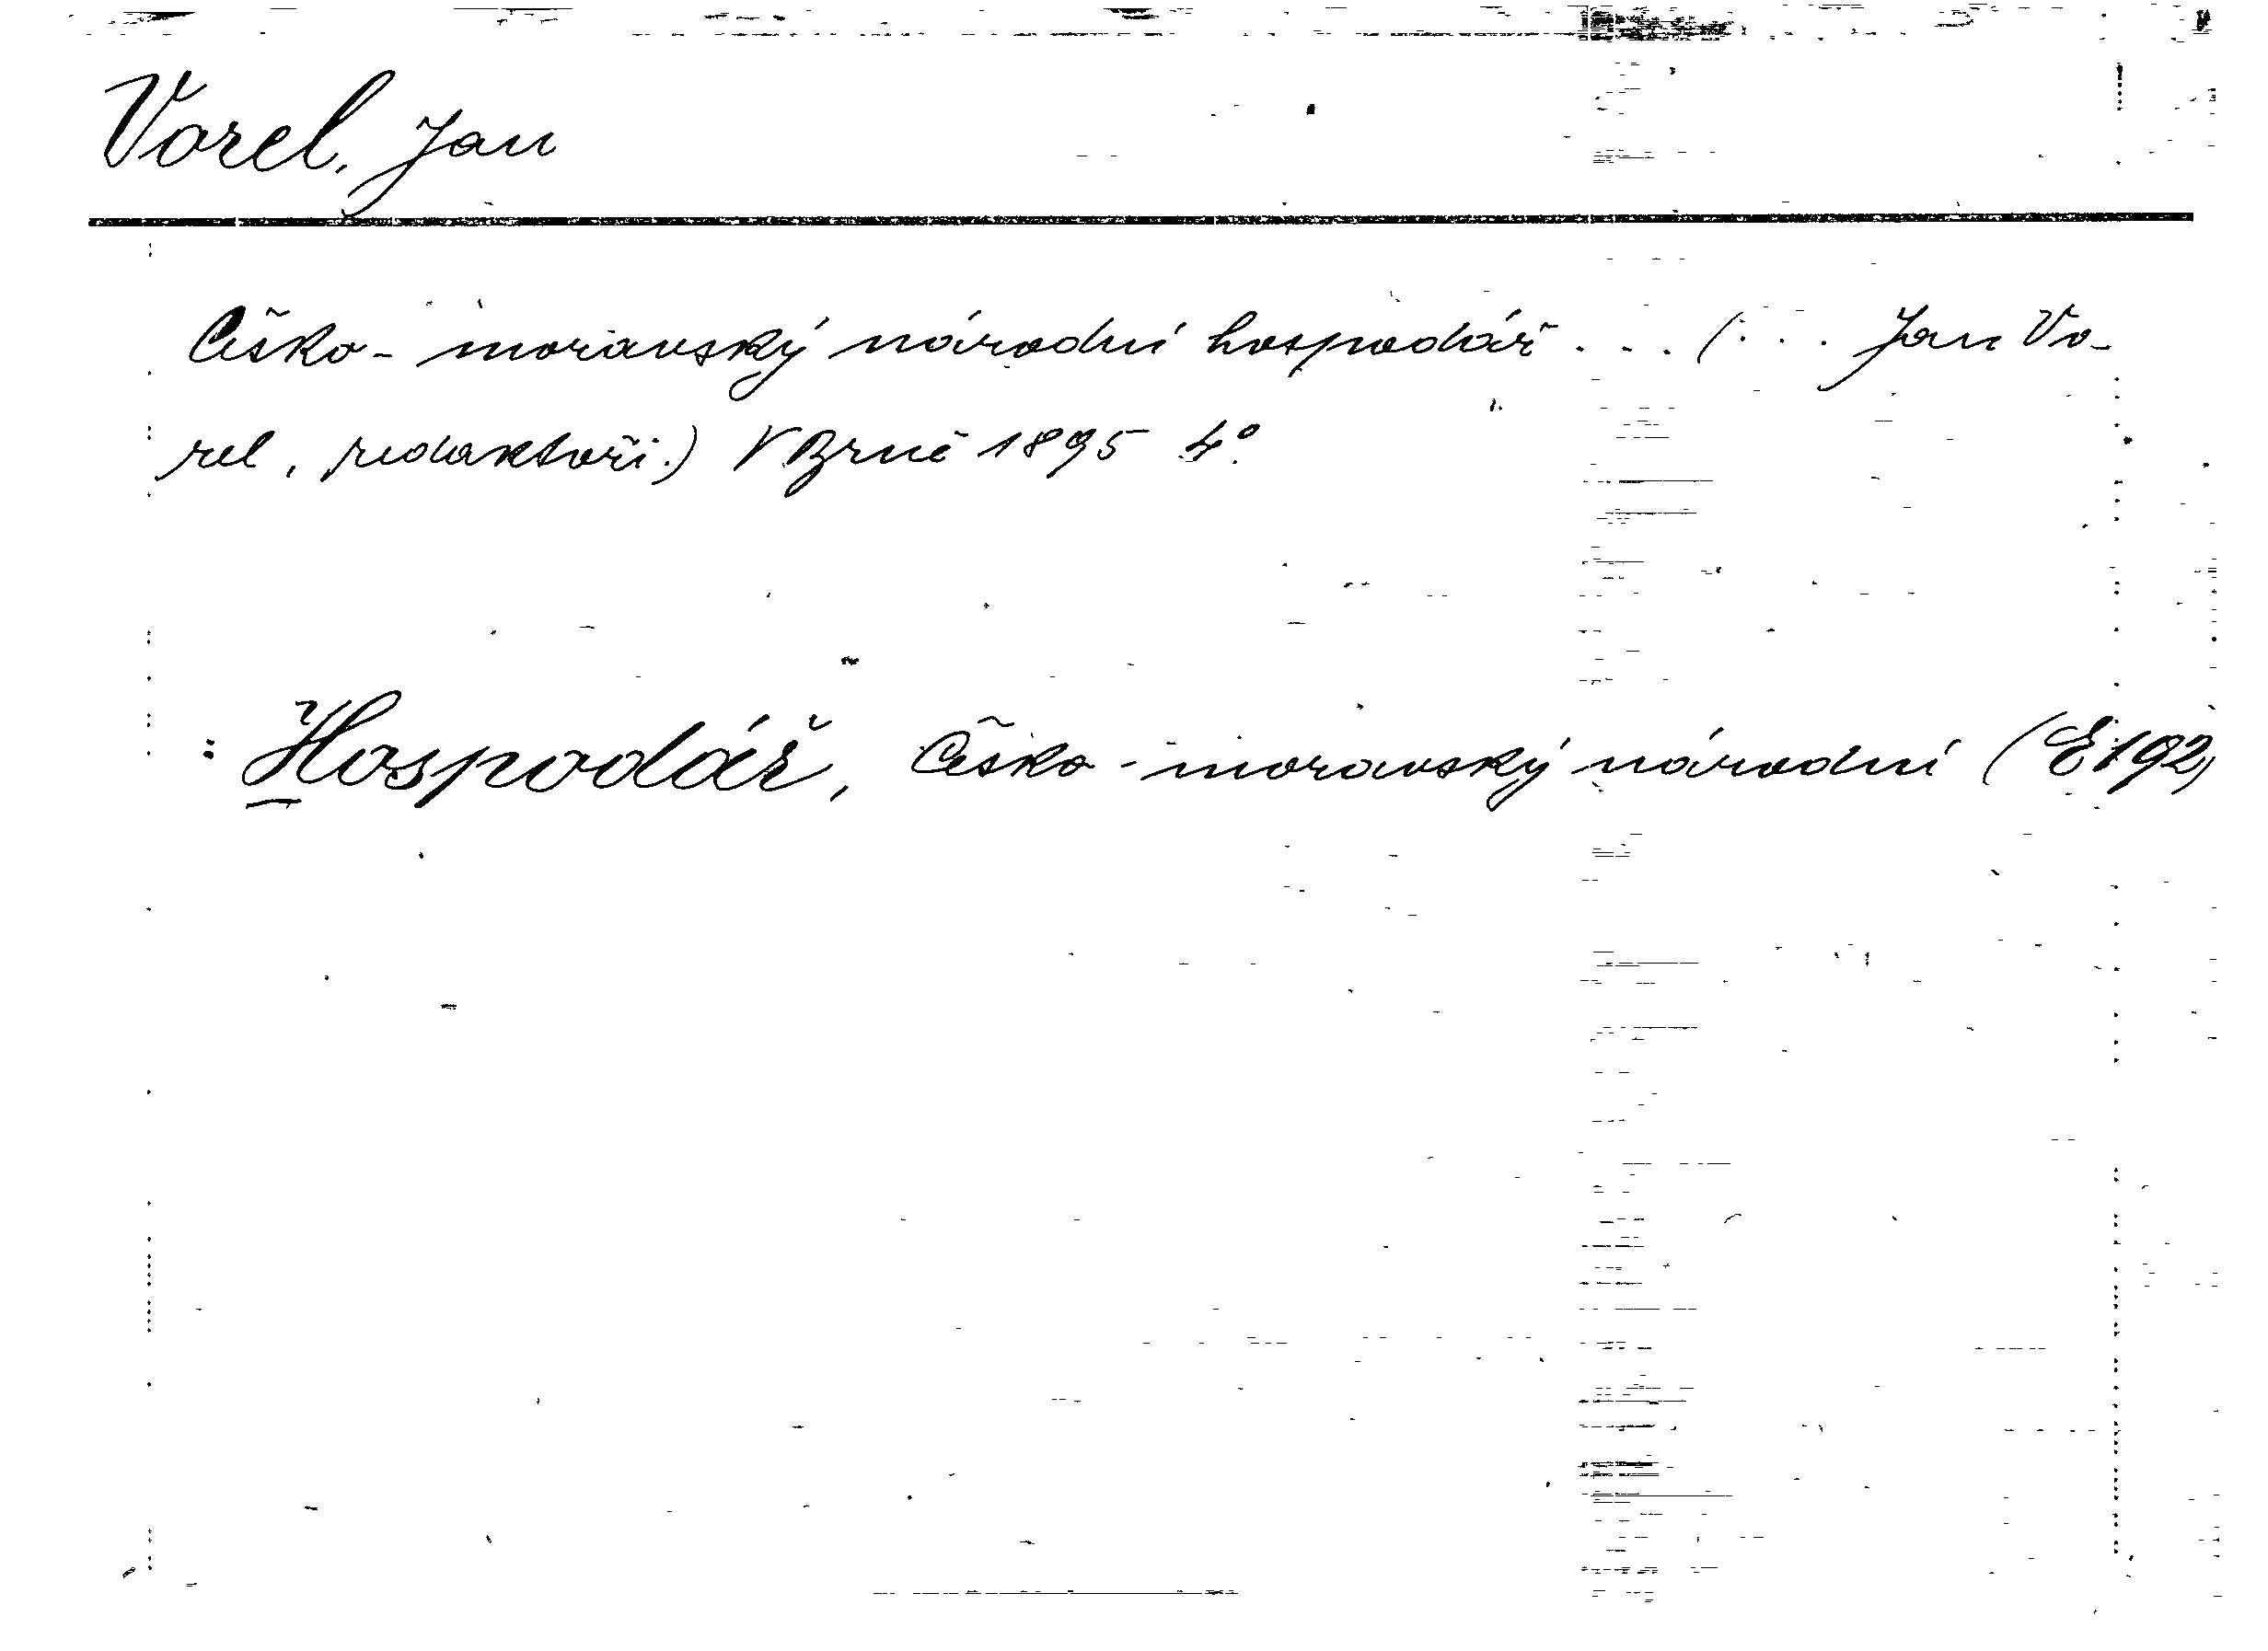 Vorel, Jan
Česko-moravský národní hospodář . . . (. . . Jan Vo-
rel, redaktoři.) V Brně 1895 4°.
: Hospodář, Česko-moravský národní (E192)